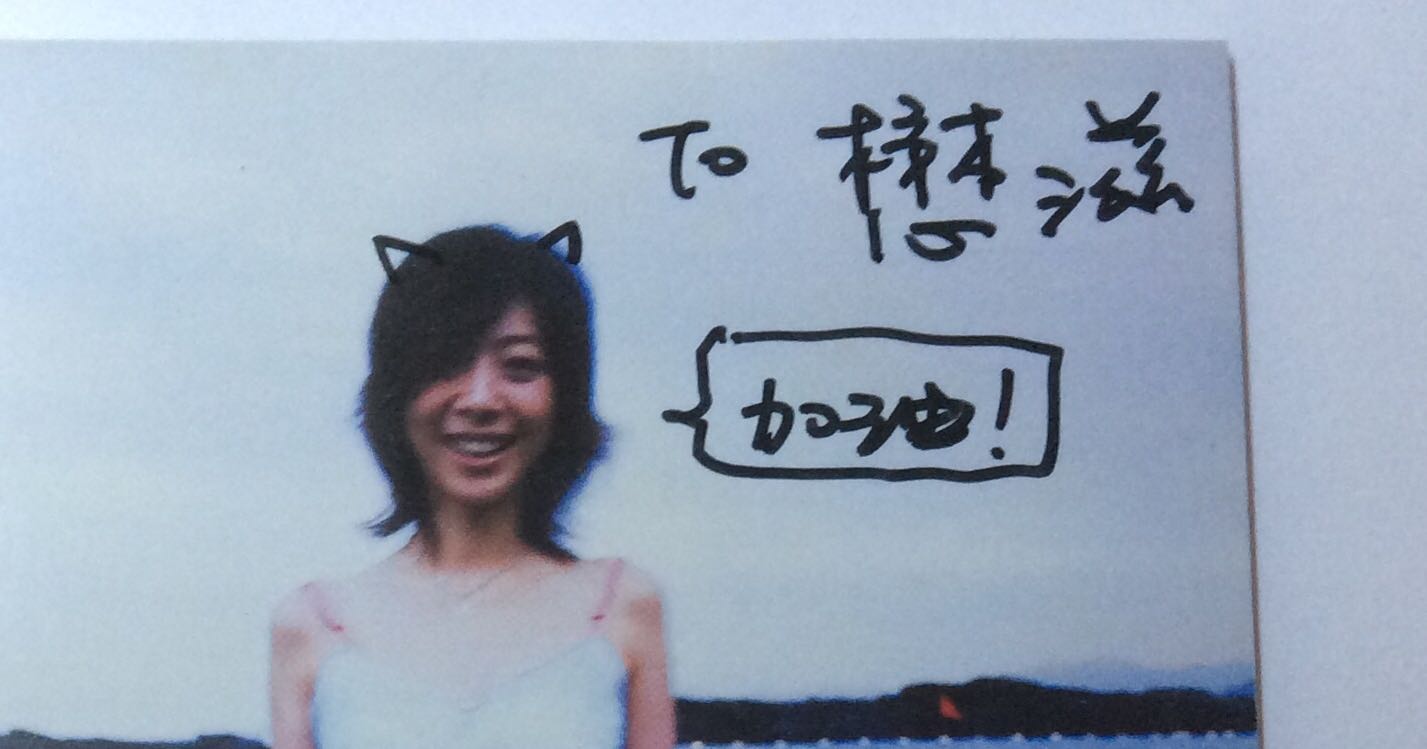 To 懋滋
加油!